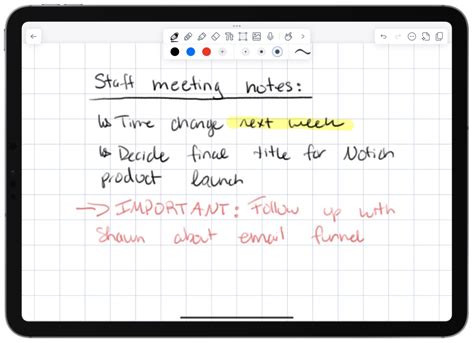 Staff meeting notes:
↳ Time change next week
↳ Decide final title for Notion
product launch
→ IMPORTANT: Follow up with
Shawn about email funnel